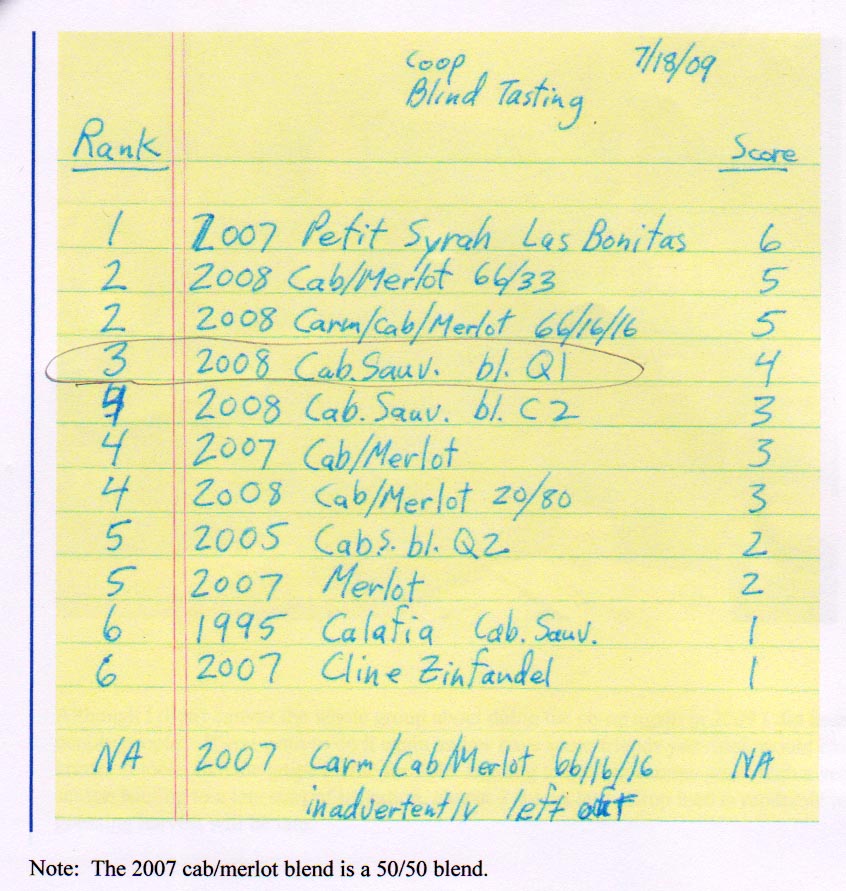 Coop 7/18/09
Blind Tasting
Rank Score
1 2007 Petit Syrah Las Bonitas 6
2 2008 Cab/Merlot 66/33 5
2 2008 Carm/Cab/Merlot 66/16/16 5
3 2008 Cab. Sauv. bl. Q1 4
4 2008 Cab. Sauv. bl. C2 3
4 2007 Cab/Merlot 3
4 2008 Cab/Merlot 20/80 3
5 2005 Cab S. bl. Q2 2
5 2007 Merlot 2
6 1995 Calafia Cab. Sauv. 1
6 2007 Cline Zinfandel 1
NA 2007 Carm/Cab/Merlot 66/16/16 NA
inadvertently left out
Note: The 2007 cab/merlot blend is a 50/50 blend.